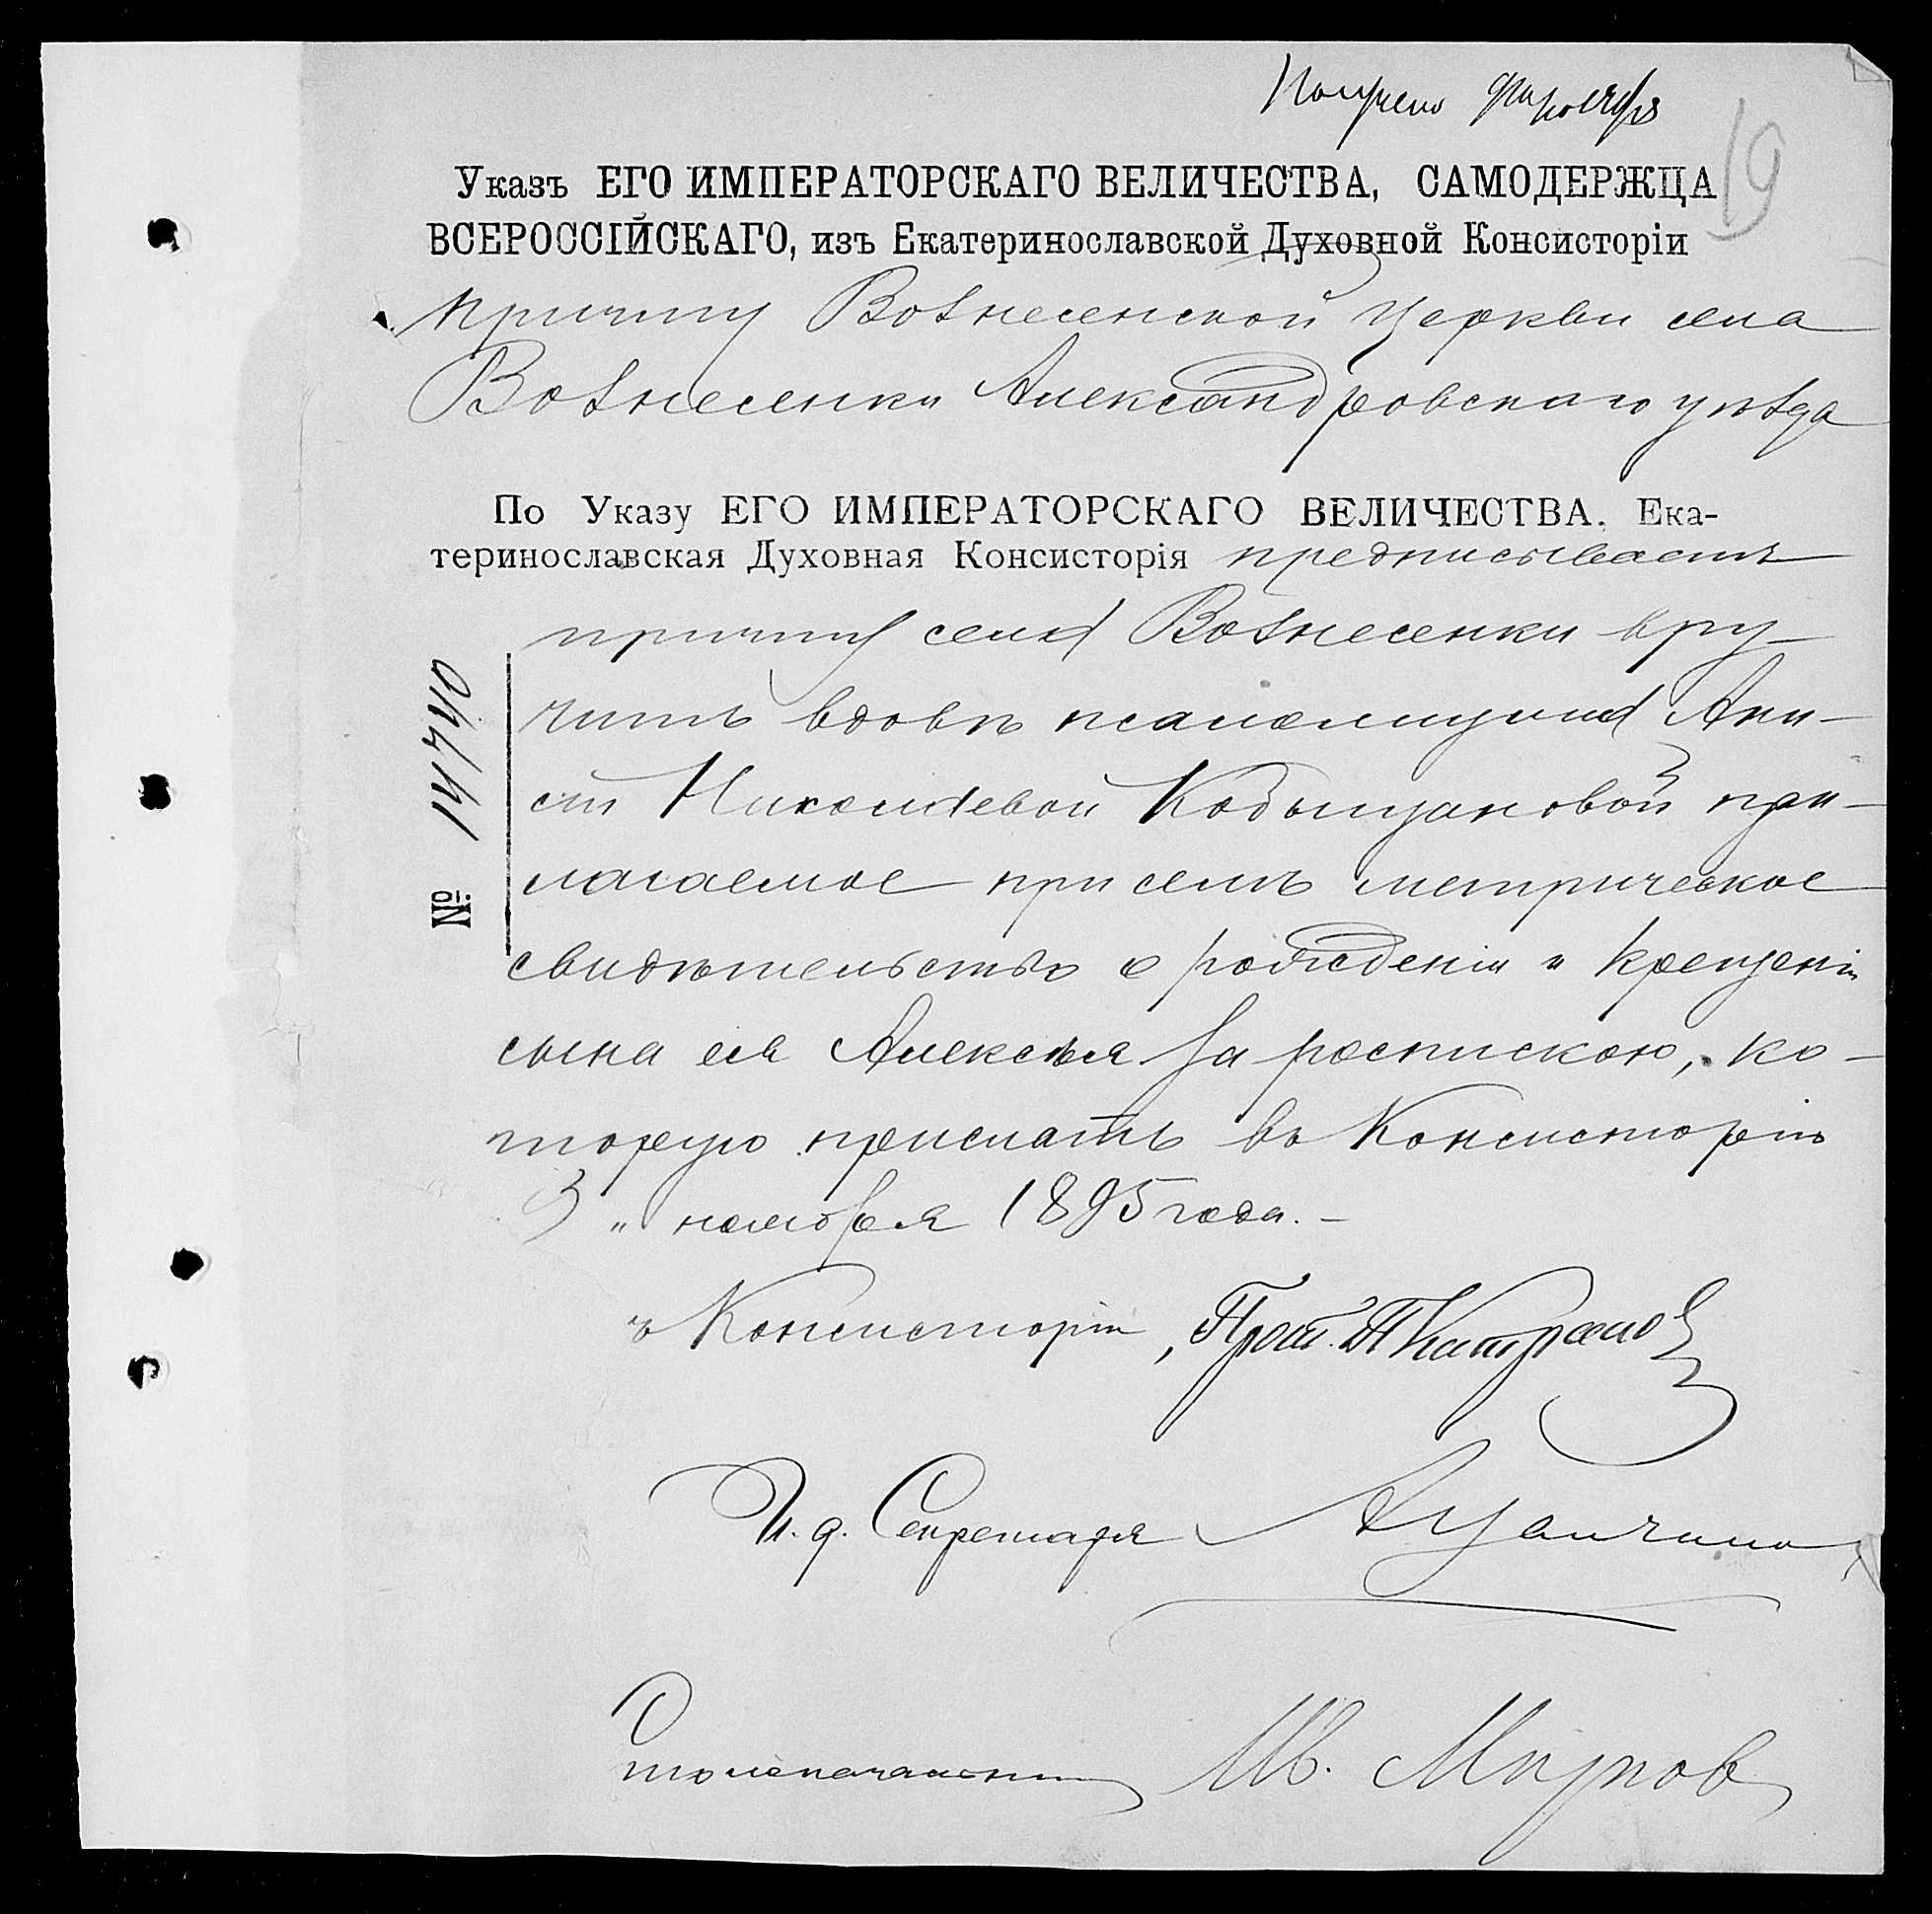 Получено
19
Указъ ЕГО ИМПЕРАТОРСКАГО ВЕЛИЧЕСТВА, САМОДЕРЖЦА
ВСЕРОССІЙСКАГО, изъ Екатеринославской Духовной Консисторіи
причту Вознесенской церкви села
Вознесенки Александровскаго уѣзда
По Указу ЕГО ИМПЕРАТОРСКАГО ВЕЛИЧЕСТВА, Ека-
теринославская Духовная Консисторія предписываетъ
причту села Вознесенки вру-
чить вдовѣ псаломщика
Николаевой при-
лагаемое при семъ метрическое
свидѣтельство о рожденіи и крещеніи
сына ея Алексѣя за роспискою, ко-
торую прислать въ Консисторію
3 " ноября 1895 года. —
№ 14740
Консисторіи, Прот.
И. д. Секретаря
Столоначальникъ Ив.